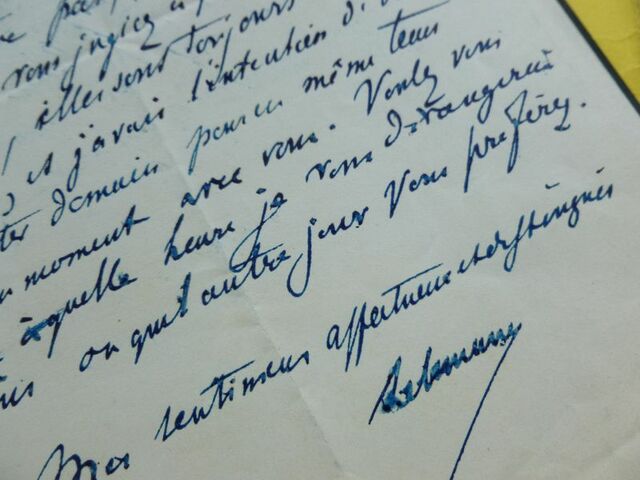 vous jugiez à p
elles sont toujours
et j'avais l'intention d
ter demain pour en même temps
moment avec vous. Voulez vous
à quelle heure je vous dérangerais
ou quel autre jour vous préférez.
Mes sentiments affectueux et distingués